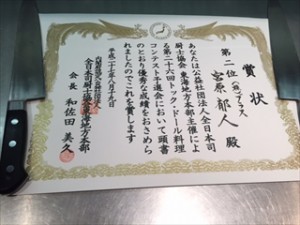 賞状
第二位
宮原郁人殿
あなたは公益社団法人全日本司
厨士協会東海地方本部主催によ
る第二十六回トック・ドール料理
コンテスト予選会において頭書
のとおり優秀な成績をおさめら
れましたのでこれを賞します
平成二十七年八月十九日
全日本司厨士協会東海地方本部
会長 和佐田美久